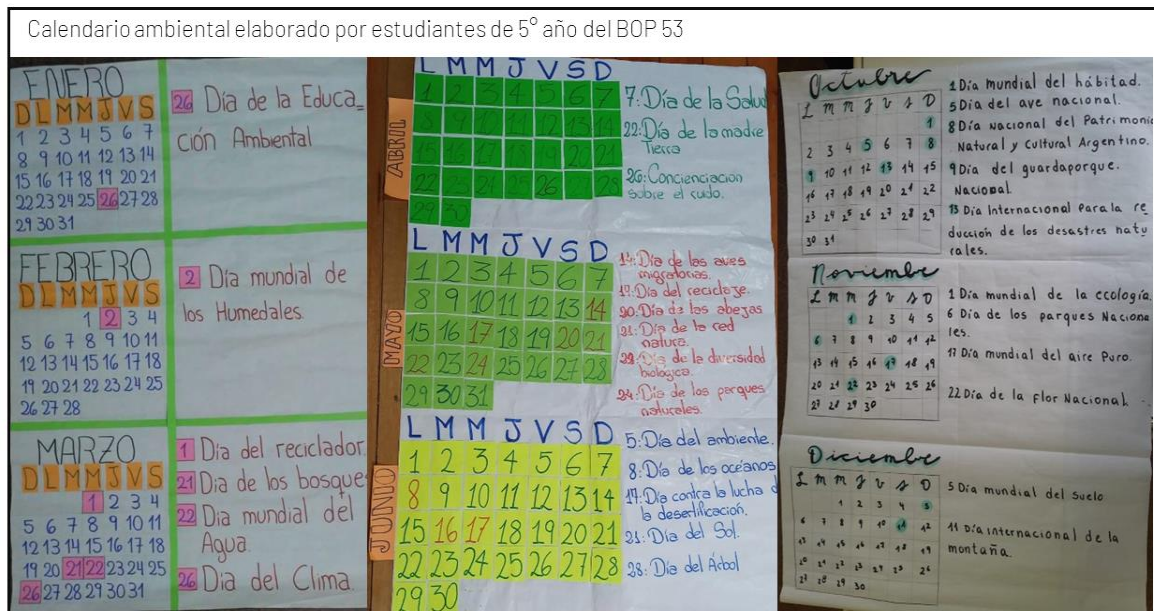 Calendario ambiental elaborado por estudiantes de 5° año del BOP 53
ENERO
D L M M J V S
1 2 3 4 5 6 7
8 9 10 11 12 13 14
15 16 17 18 19 20 21
22 23 24 25 26 27 28
29 30 31
26 Día de la Educa_
ción Ambiental
FEBRERO
D L M M J V S
1 2 3 4
5 6 7 8 9 10 11
12 13 14 15 16 17 18
19 20 21 22 23 24 25
26 27 28
2 Día mundial de
los Humedales.
MARZO
D L M M J V S
1 2 3 4
5 6 7 8 9 10 11
12 13 14 15 16 17 18
19 20 21 22 23 24 25
26 27 28 29 30 31
1 Día del reciclador
21 Dia de los bosque
22 Dia mundial del
Agua.
26 Dia del Clima.
ABRIL
L M M J V S D
1 2 3 4 5 6 7
8 9 10 11 12 13 14
15 16 17 18 19 20 21
22 23 24 25 26 28
29 30
7: Día de la Salud
22: Día de la madre
Tierra
26: Concienciación
sobre el ruido.
MAYO
L M M J V S D
1 2 3 4 5 6 7
8 9 10 11 12 13 14
15 16 17 18 19 20 21
22 23 24 25 26 27 28
29 30 31
14: Día de las aves
migratorias.
17: Día del reciclaje.
20: Día de las abejas
21: Día de la red
natura.
22: Día de la diversidad
biologica.
24: Día de los parques
naturales.
JUNIO
L M M J V S D
1 2 3 4 5 6 7
8 9 10 11 12 13 14
15 16 17 18 19 20 21
22 23 24 25 26 27 28
29 30
5: Día del ambiente.
8: Día de los oceános
17: Día contra la lucha d
la desertificación.
21: Día del Sol.
28: Día del Árbol
Octubre
L m m J v s D
1
2 3 4 5 6 7 8
9 10 11 12 13 14 15
16 17 18 19 20 21 22
23 24 25 26 27 28 29
30 31
1 Día mundial del hábitad.
5 Día del ave nacional.
8 Día Nacional del Patrimonio
Natural y Cultural Argentino.
9 Día del guardaporque.
Nacional.
13 Día Internacional Para la re
ducción de los desastres natu
rales.
Noviembre
L m m J v s D
1 2 3 4 5
6 7 8 9 10 11 12
13 14 15 16 17 18 19
20 21 22 23 24 25 26
27 28 29 30
1 Día mundial de la ecología.
6 Día de los parques Naciona
les.
17 Día mundial del aire Puro.
22 Día de la flor Nacional
Diciembre
L m m J v s D
1 2 3 4 5
6 7 8 9 10 11 12
5 Día mundial del suelo
11 Día internacional de la
montaña.